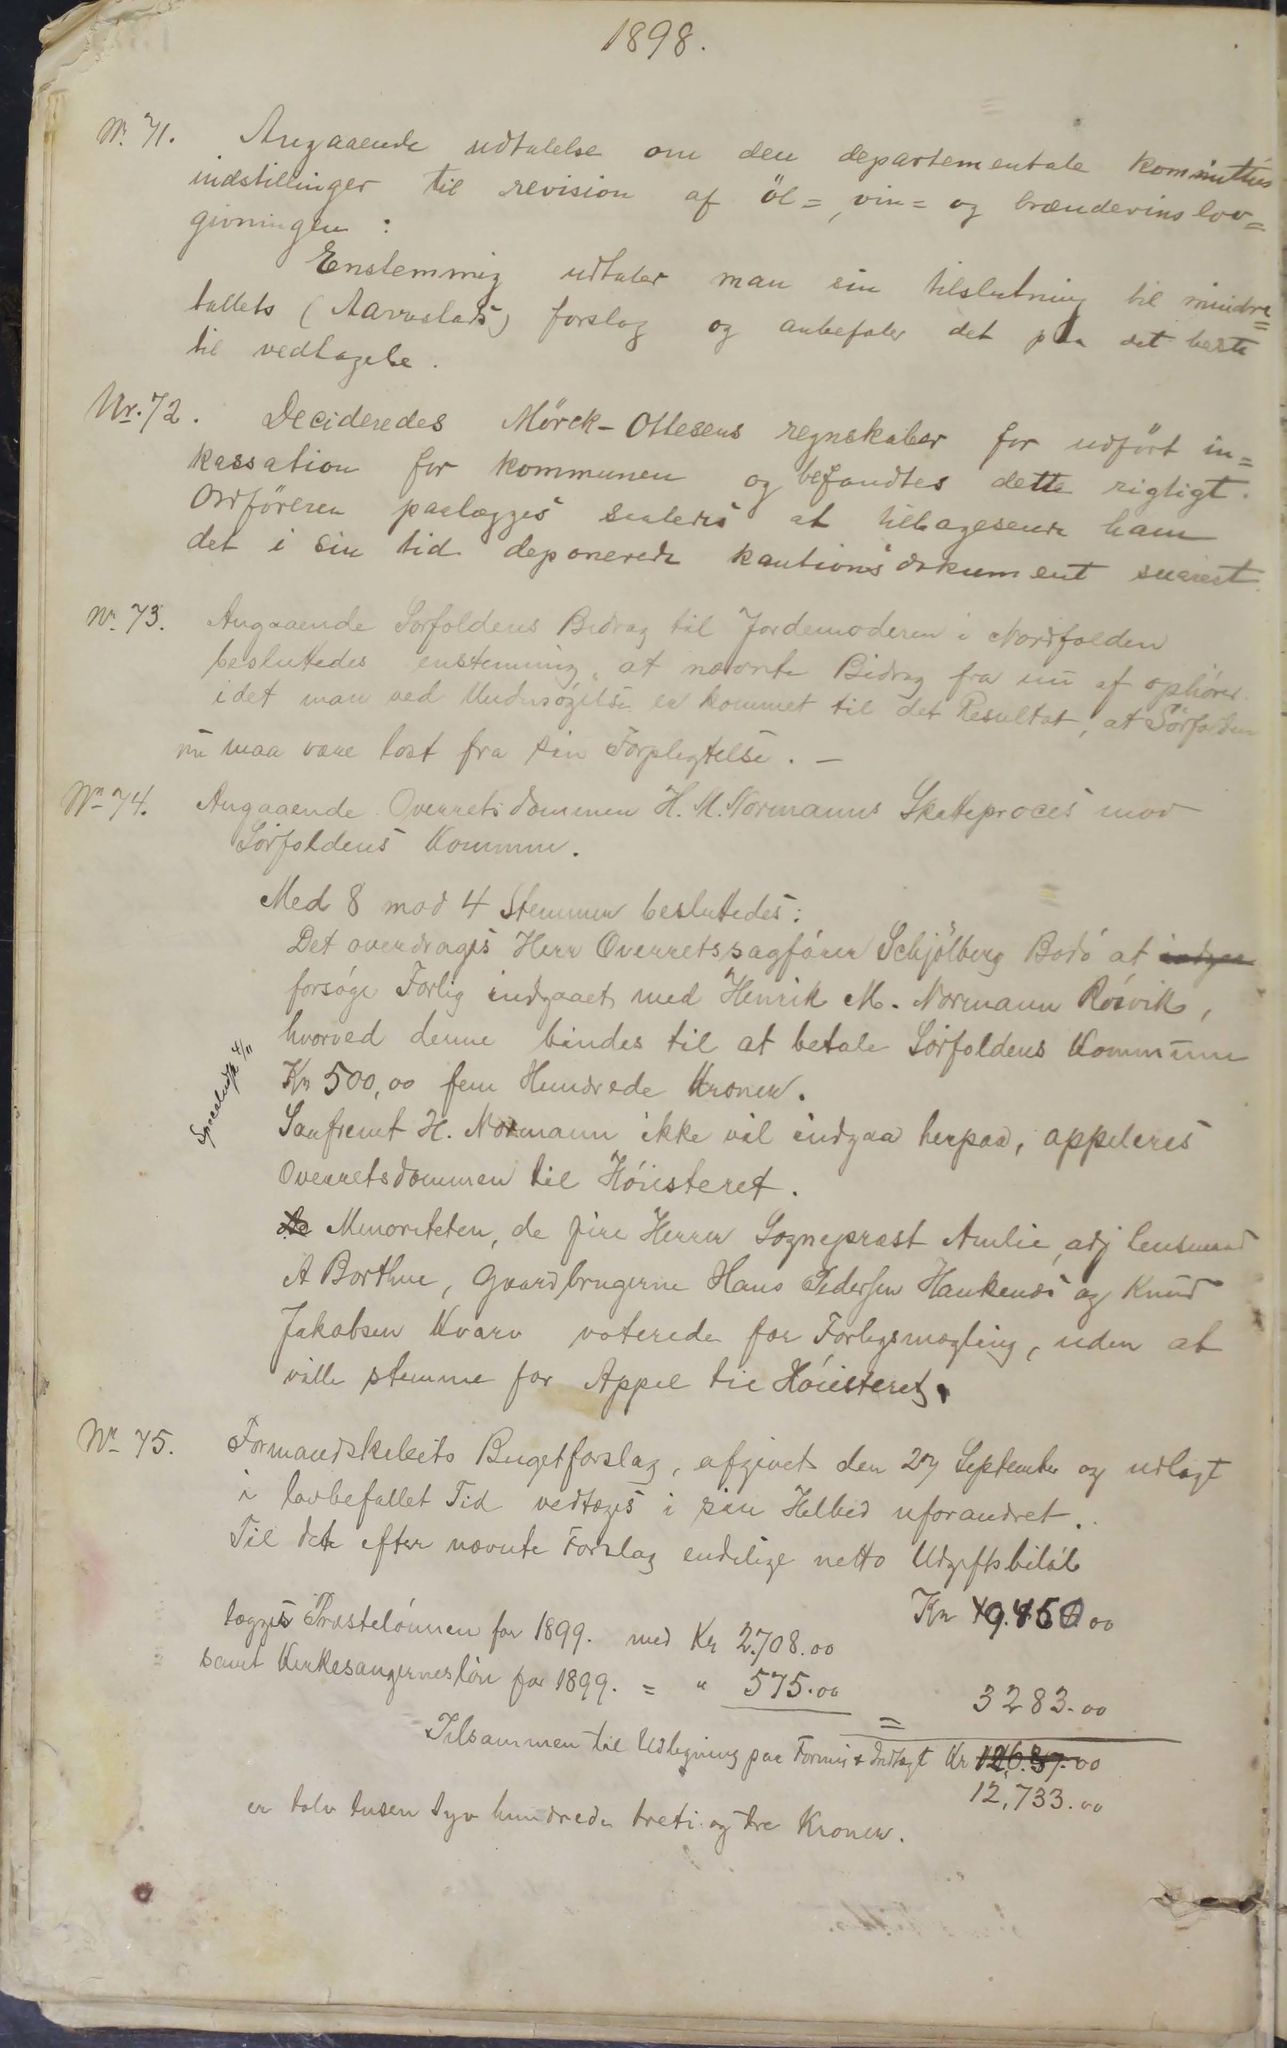 1898.
Nr. 71. Angaaende udtalelse om den departementale kommittés
indstillinger til revision af öl=, vin= og brændevins lov=
givningen:
Enstemmig udtaler man sin tilslutning til mindre=
tallets (Aarrestads) forslag og anbefaler det paa det beste
til vedtagelse.
Nr. 72. Decideredes Mörck-Ottesens regnskaber for udfört in=
kassation for kommunen og befandtes dette rigtigt.
Ordföreren paalægges saaledes at tilbagesende ham
det i sin tid deponerede kautionsdokument snarest.
Nr. 73. Angaaende Sørfoldens Bidrag til Jordemoderen i Nordfolden
besluttedes enstemmig, at nævnte Bidrag fra nu af ophører
idet man ved Undersøgelse er kommet til det Resultat, at Sørfolden
nu maa være løst fra sin Forpligtelse. —
Nr. 74. Angaaende Overretsdommen H. M. Normanns Skatteproces mod
Sørfoldens Kommune.
Med 8 mod 4 Stemmer besluttedes:
Det overdrages Herr Overretssagfører Schjölberg Bodø at indgaa
forsøge Forlig indgaaet med Henrik M. Normann Røsvik,
hvorved denne bindes til at betale Sørfoldens Kommune
Kr 500,00 fem Hundrede Kroner.
4/11
Saafremt H. Normann ikke vil indgaa herpaa, appeleres
Overretsdommen til Høiesteret.
de Minoriteten, de fire Herrer Sogneprest Amlie, adj lensmand
A Borthne, Gaardbrugerne Hans Pedersen Hankenæs og Knud
Jakobsen Kvarv voterede for Forligsmægling, uden at
ville stemme for Appel til Høiesteret.
Nr. 75. Formandskabets Bugetforslag, afgivet den 27 September og udlagt
i lovbefallet Tid vedtages i sin Helhed uforandret.
Til dette efter nævnte Forslag endelige netto Udgiftsbeløb
Kr 9.450 00
lægges Præstelønnen for 1899. med Kr 2.708.00
samt Kirkesangernesløn for 1899. = " 575.00 = 3283.00
Tilsammen til Udligning paa Formue & Indtægt Kr .00
12,733.00
er tolv tusen syv hundrede treti og tre Kroner.